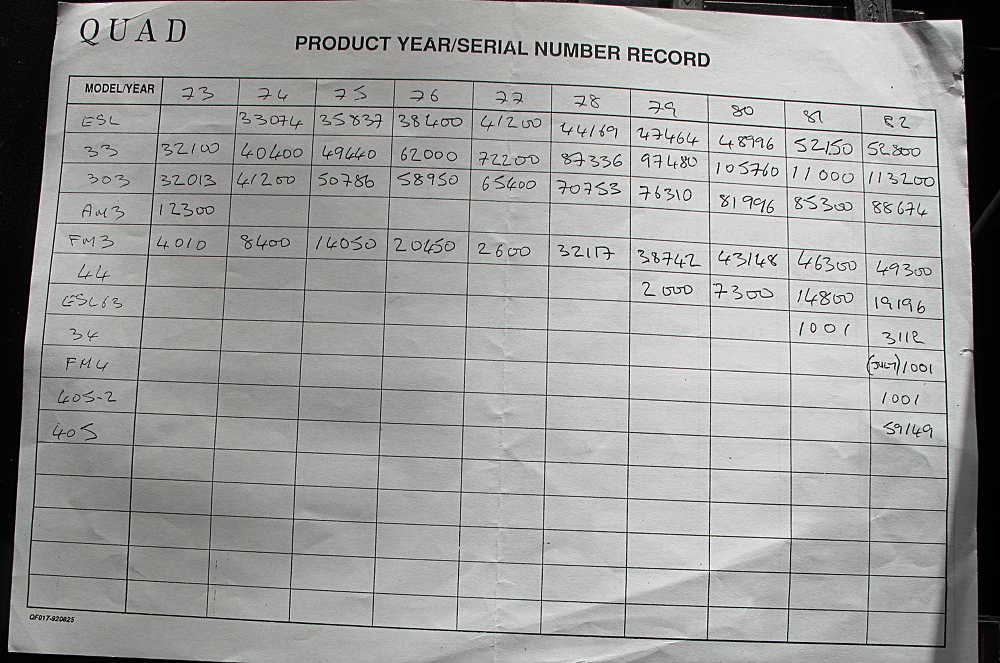 QUAD
PRODUCT YEAR/SERIAL NUMBER RECORD
MODEL/YEAR 73 74 75 76 77 78 79 80 81 82
ESL 33074 35837 38400 41200 44169 47464 48996 52150 52800
33 32100 40400 49440 62000 72200 87336 97480 105760 11000 113200
303 32013 41200 50786 58950 65400 70753 76310 81996 85300 88674
AM3 12300
FM3 4010 8400 14050 20450 2600 32117 38742 43148 46300 49300
44 2000 7300 14800 19196
ESL63 1001 3112
34 (JULY) 1001
FM4 1001
405-2 59149
405
QF017-920825